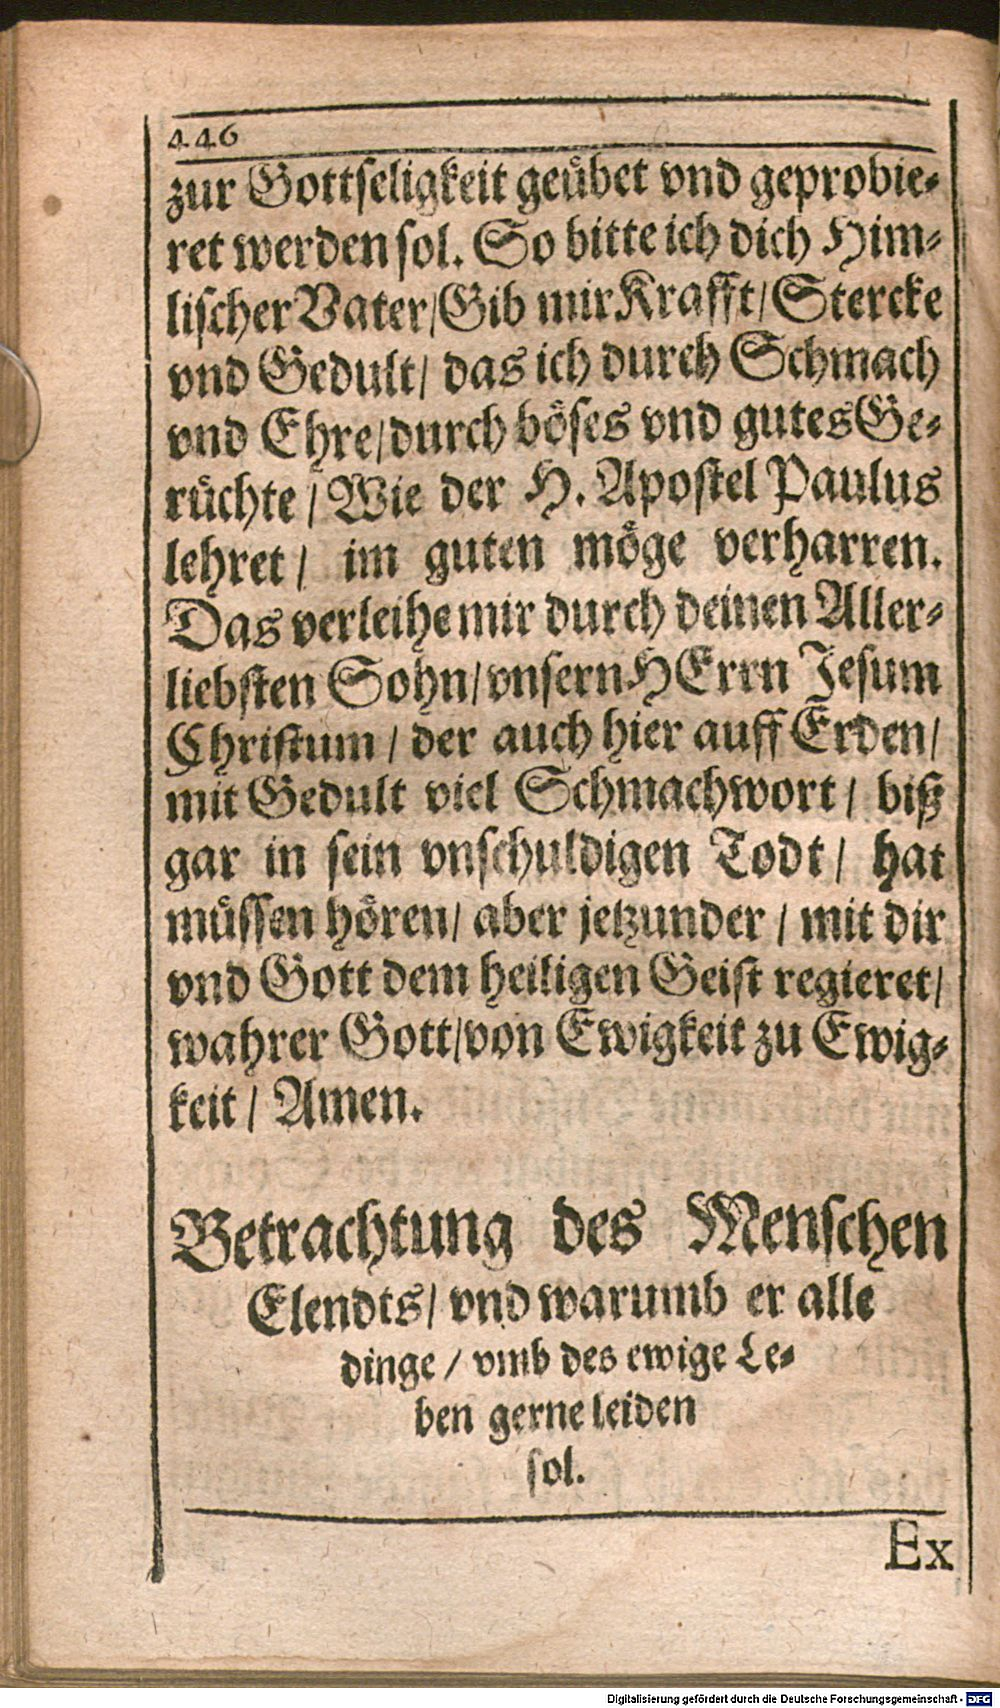 446
zur Gottseligkeit geübet vnd geprobie-
ret werden sol. So bitte ich dich Him-
lischer Vater/Gib mir Krafft/Stercke
vnd Gedult/ das ich durch Schmach
vnd Ehre/durch böses vnd gutes Ge-
rüchte/Wie der H. Apostel Paulus
lehret/ im guten möge verharren.
Das verleihe mir durch deinen Aller-
liebsten Sohn/vnsern HErrn Jesum
Christum/ der auch hier auff Erden/
mit Gedult viel Schmachwort/ biß
gar in sein vnschuldigen Todt/ hat
müssen hören/ aber jetzunder/ mit dir
vnd Gott dem heiligen Geist regieret/
wahrer Gott/von Ewigkeit zu Ewig-
keit/ Amen.
Betrachtung des Menschen
Elendts/ vnd warumb er alle
dinge/ vmb des ewige Le-
ben gerne leiden
sol.
Ex
Digitalisierung gefördert durch die Deutsche Forschungsgemeinschaft - DFG